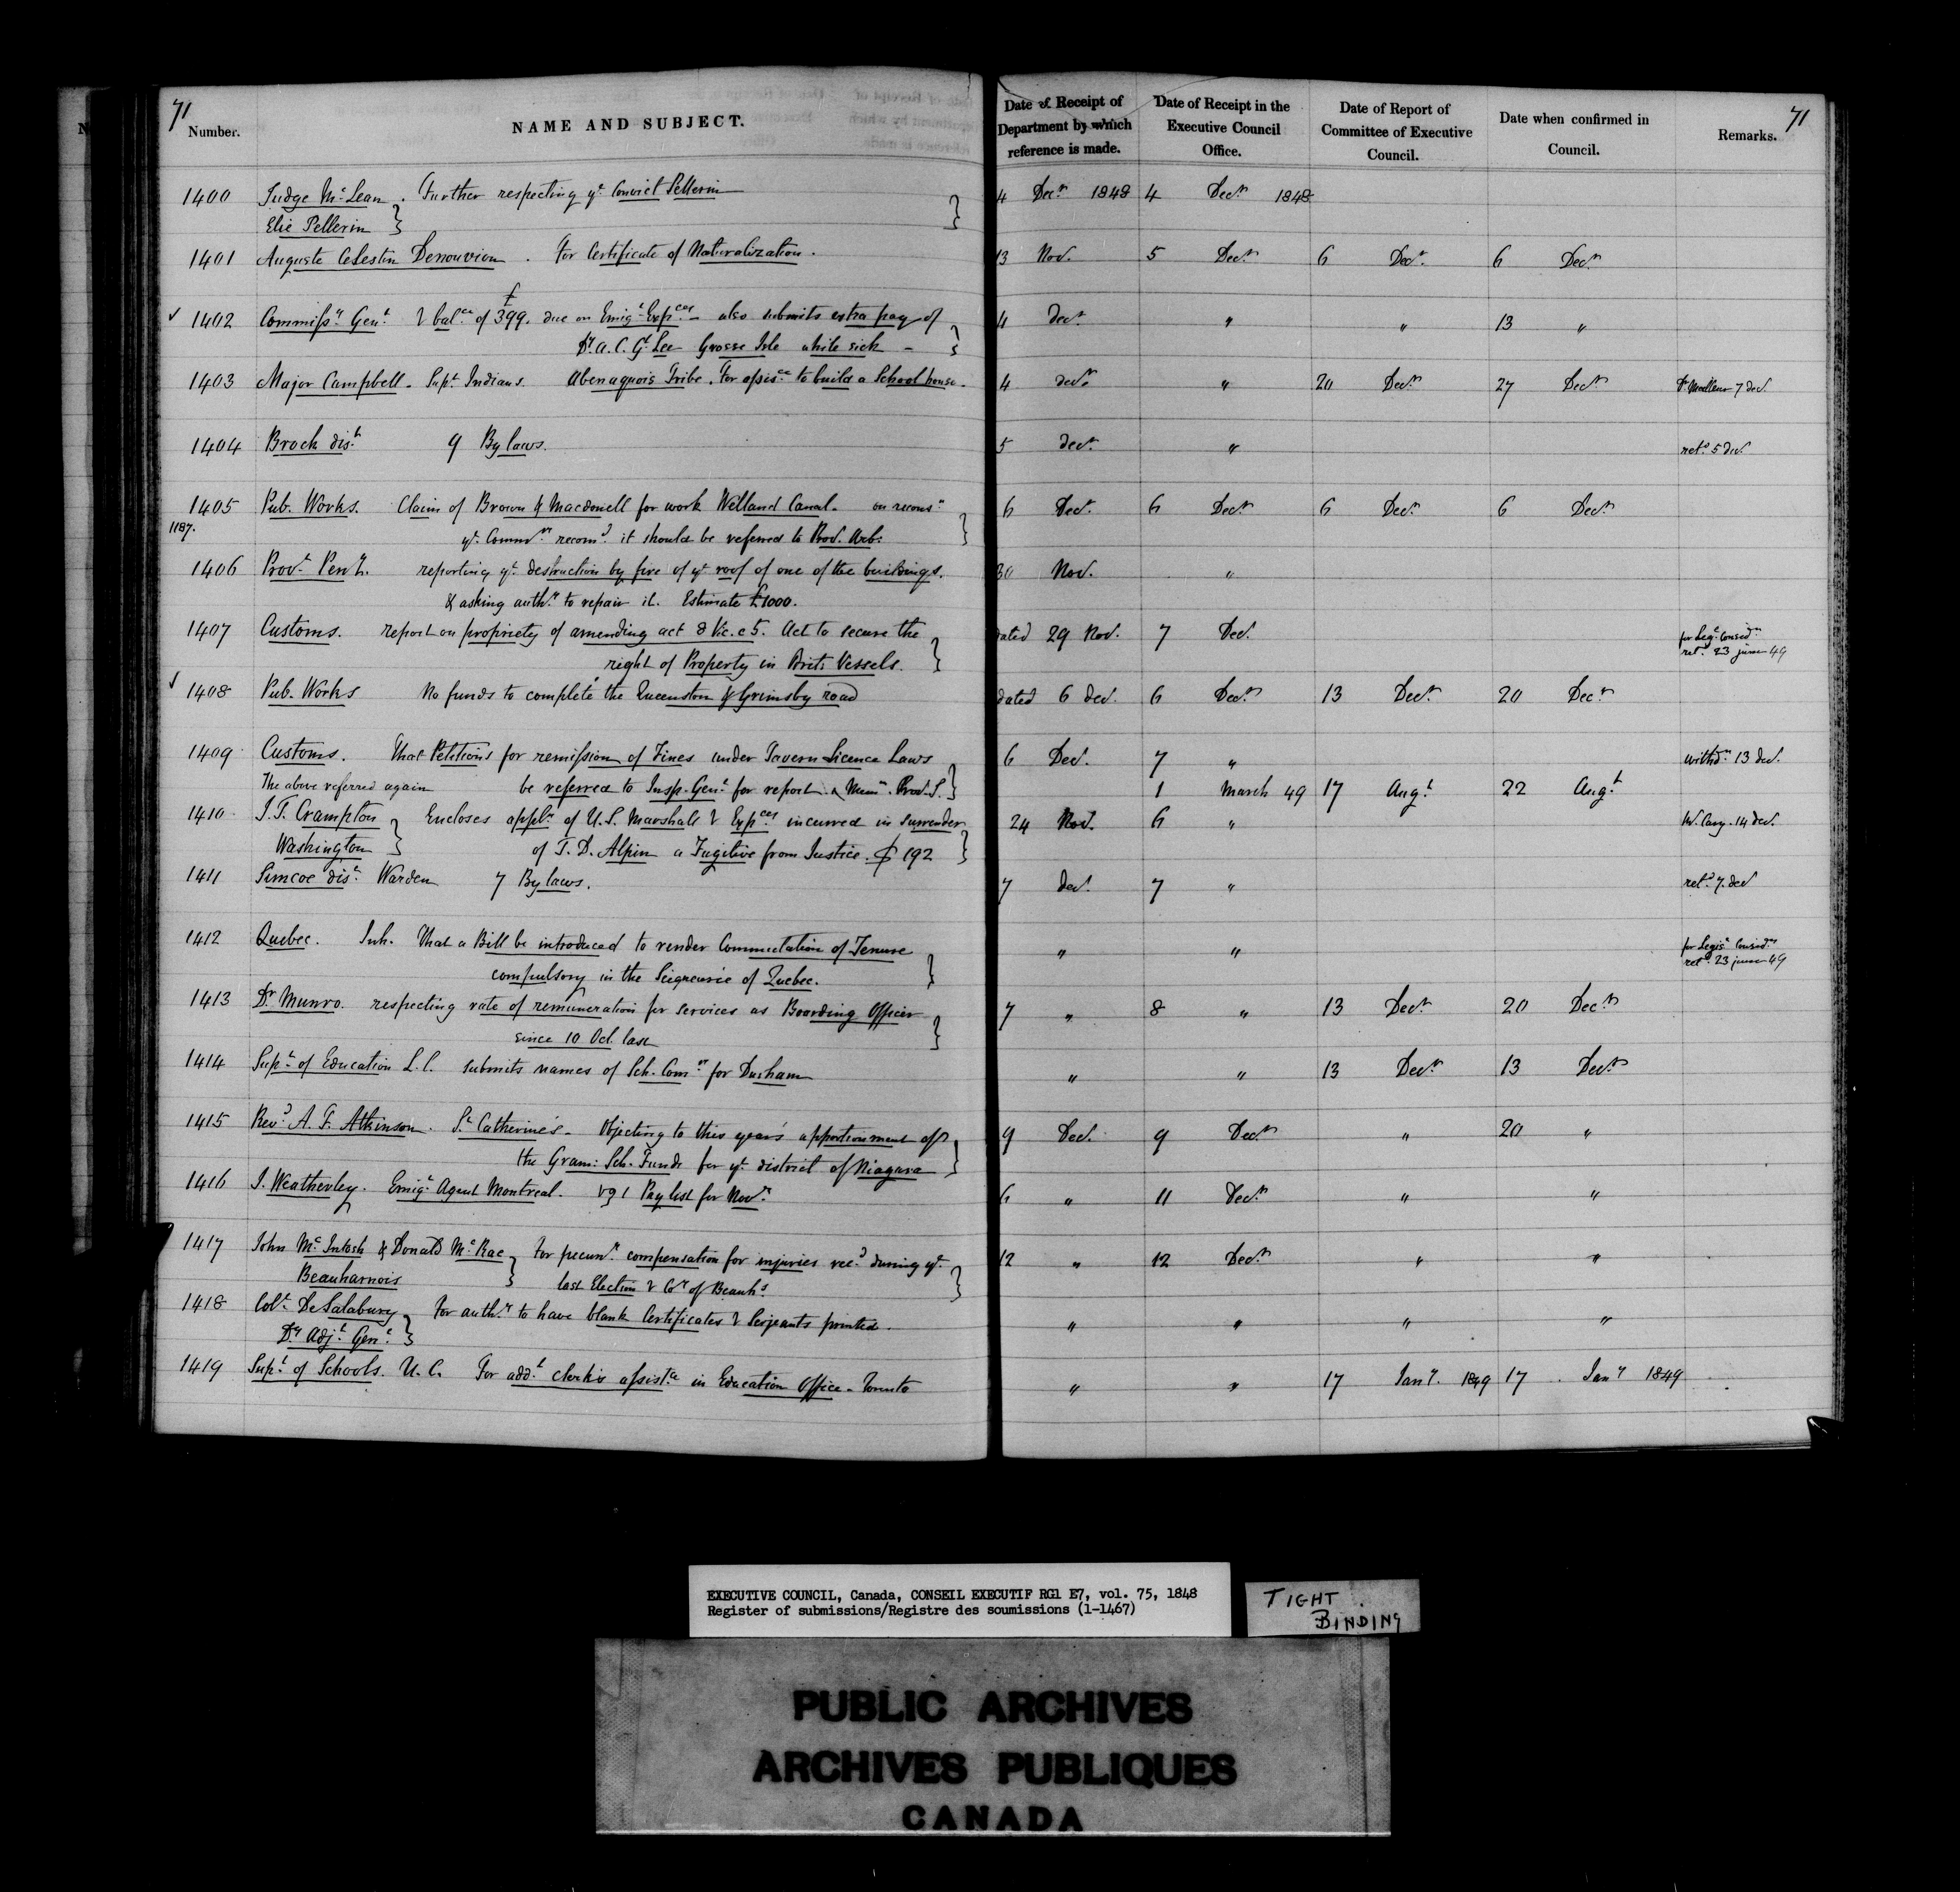 71
Number.
NAME AND SUBJECT.
Date of Receipt of Department by which reference is made.
Date of Receipt in the Executive Council Office.
Date of Report of Committee of Executive Council.
Date when confirmed in Council.
Remarks.
71
1400 Judge McLean . Further respecting yt Convict Pellerin 4 Decr 1848 4 Decr 1848
Elie Pellerin
1401 Auguste Celestin Denouvion . For Certificate of Naturalization . 13 Nov. 5 Decr 6 Decr 6 Decr
✓ 1402 Commissy Genl balce of £399. due on Emigt Expces – also submits extra pay of 4 Decr " " 13 "
Dr. A. C. Gt Lee Grosse Isle while sick –
1403 Major Campbell – Supt Indians. Abenaquois Tribe. For assisce to build a School house. 4 decr " 20 Decr 27 Decr Dr Meilleur 7 decr
1404 Brock dist 9 By laws. 5 decr " retd 5 decr
1405 Pub. Works. Claim of Brown & Macdonell for work Welland Canal – on reconsn 6 Decr 6 Decr 6 Decr 6 Decr
1187. yt Commrs recomd it should be referred to Prov. Arb:
1406 Provl Peny. reporting yt destruction by fire of yt roof of one of the buildings. 30 Nov. "
& asking authy to repair it. Estimate £1000.
1407 Customs. report on propriety of amending act 8 Vic. c 5. Act to secure the dated 29 Nov. 7 Dec. for Legt Considn
right of Property in Brit: Vessels. retd 23 june 49
✓ 1408 Pub. Works No funds to complete the Queenston & Grimsby road dated 6 dec. 6 Decr 13 Decr 20 Decr
1409 Customs. That Petitions for remission of Fines under Tavern Licence Laws 6 Dec. 7 " withdn 13 dec.
The above referred again be referred to Insp. Genl for report & Memm. Prov. S. 1 March 49 17 Augt 22 Augt
1410 J. F. Crampton Encloses appln of U.S. Marshall Expces incurred in surrender 24 Nov. 6 " W. Cary. 14 dec.
Washington of T. D. Alpin a Fugitive from Justice. $ 192
1411 Simcoe dist Warden 7 By laws. 7 dec. 7 " retd 7. dec
1412 Quebec. Inh. That a Bill be introduced to render Commutation of Tenure " " for Legisn Considn
compulsory in the Seigneurie of Quebec. retd 23 june 49
1413 Dr Munro. respecting rate of remuneration for services as Boarding Officer 7 " 8 " 13 Decr 20 Decr
since 10 Oct. last
1414 Supt of Education L. C. submits names of Sch. Comrs for Durham " " 13 Decr 13 Decr
1415 Revd A. F. Atkinson. St Catherine's – Objecting to this year's apportionment of 9 Dec. 9 Decr " 20 "
the Gram: Sch. Funds for yt district of Niagara
1416 J. Weatherley. Emigt Agent Montreal. Pay list for Novr 6 " 11 Decr " "
1417 John McIntosh & Donald McRae For pecuny compensation for injuries recd during yt 12 " 12 Decr " "
Beauharnois last Election Coy of Beauhs
1418 Coll DeSalabury For authy to have blank Certificates Serjeants printed. " " " "
Dy Adjt Genl
1419 Supt of Schools. U. C. For addl clerk's assistce in Education Office – Toronto " " 17 Jany. 1849 17 Jany 1849
EXECUTIVE COUNCIL, Canada, CONSEIL EXECUTIF RG1 E7, vol. 75, 1848
Register of submissions/Registre des soumissions (1-1467)
TIGHT BINDING
PUBLIC ARCHIVES
ARCHIVES PUBLIQUES
CANADA